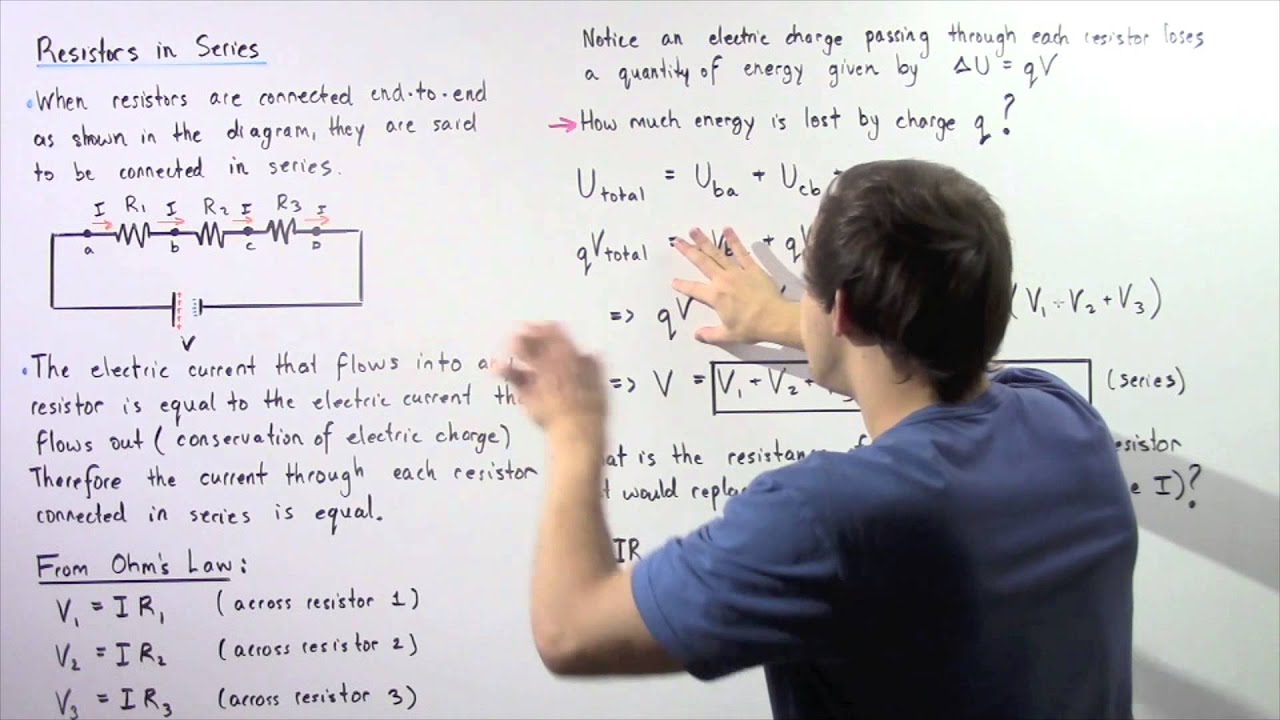 Resistors in Series
• When resistors are connected end-to-end
as shown in the diagram, they are said
to be connected in series.
I R₁ I R₂ I R₃ I
a b c D
V
• The electric current that flows into
resistor is equal to the electric current
flows out (conservation of electric charge)
Therefore the current through each resistor
connected in series is equal.
From Ohm's Law:
V₁ = I R₁ (across resistor 1)
V₂ = I R₂ (across resistor 2)
V₃ = I R₃ (across resistor 3)
Notice an electric charge passing through each resistor loses
a quantity of energy given by ΔU = qV
→ How much energy is lost by charge q?
U total = U ba + U cb
qV total = + q
=> qV (V₁ + V₂ + V₃)
=> V = V₁ + V₂ + (series)
is the
would I)?
IR